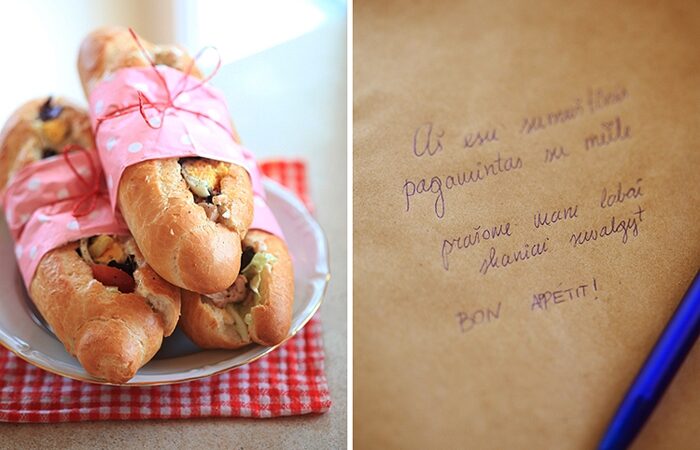 Aš esu sumuštinis
pagamintas su meile
prašome mane labai
skaniai suvalgyt
BON APPETIT!